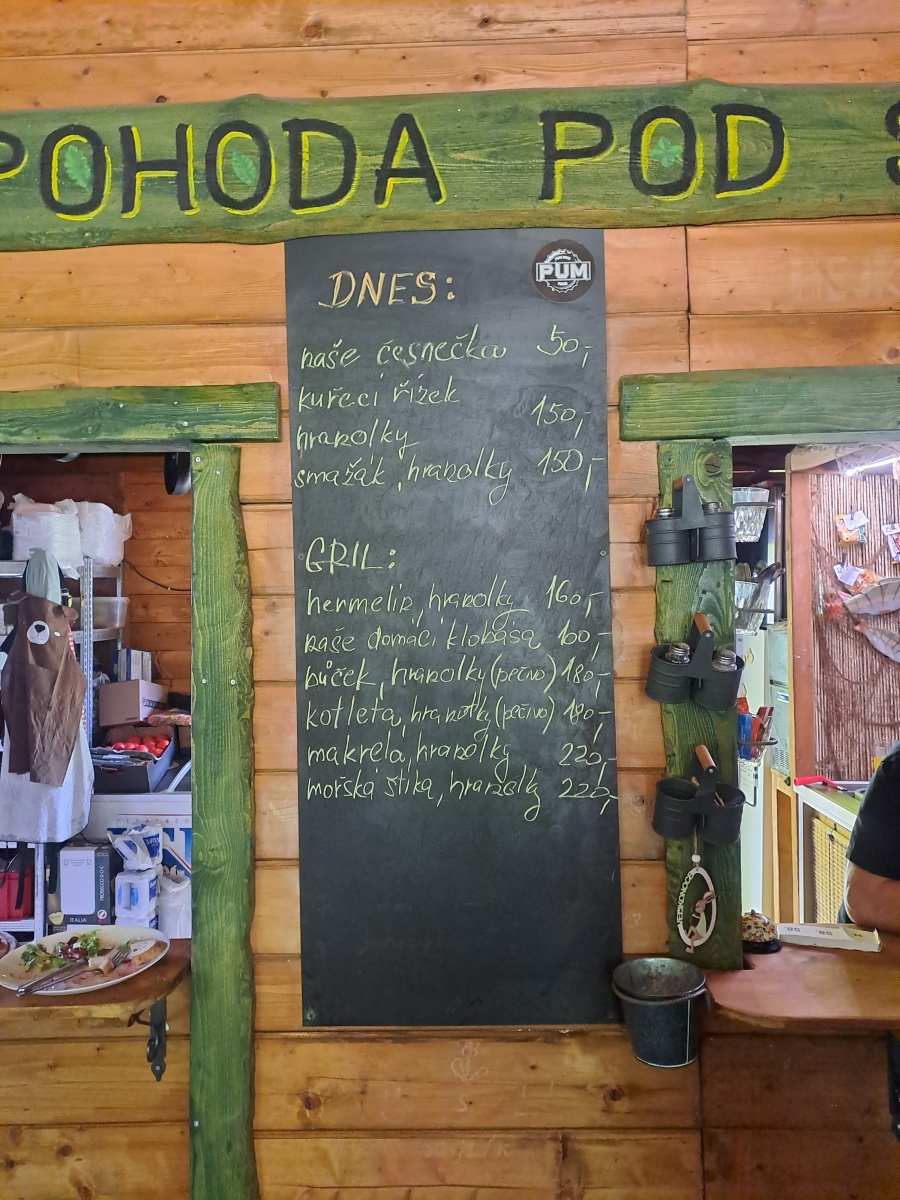 POHODA POD
DNES:
PUM
naše česnečka 50,-
kuřecí řízek
hranolky 150,-
smažák, hranolky 150,-
GRIL:
hermelín, hranolky 160,-
naše domácí klobása 100,-
bůček, hranolky (pečivo) 180,-
kotleta, hranolky (pečivo) 180,-
makrela, hranolky 220,-
mořská štika, hranolky 220,-
ITALIA